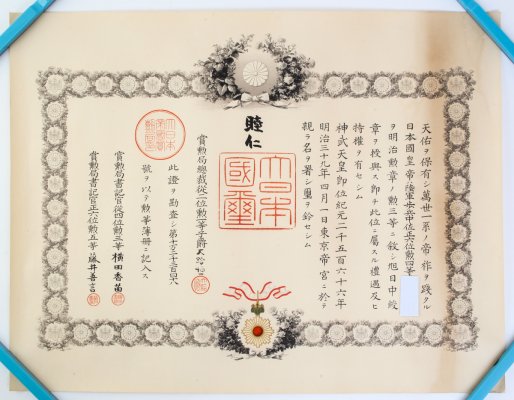 天佑ヲ保有シ萬世一系ノ帝祚ヲ踐タル
日本國皇帝陸軍歩兵中位正六位勲四等
ヲ明治勲章ノ勲三等ニ敍シ旭日中綬
章ヲ授與ス即チ此位ニ屬スル禮遇及ヒ
特權ヲ有セシム
神武天皇即位紀元二千五百六十六年
明治三十九年四月一日東京帝宮ニ於テ
親ラ名ヲ署シ璽ヲ鈐セシム
睦仁
大日本
國璽
賞勲局總裁從二位勲一等子爵
此證ヲ勘査シ第
號ヲ以テ勲等簿冊ニ記入ス
賞勲局書記官從四位勲三等 横田香苗
賞勲局書記官正六位勲五等 藤井善言